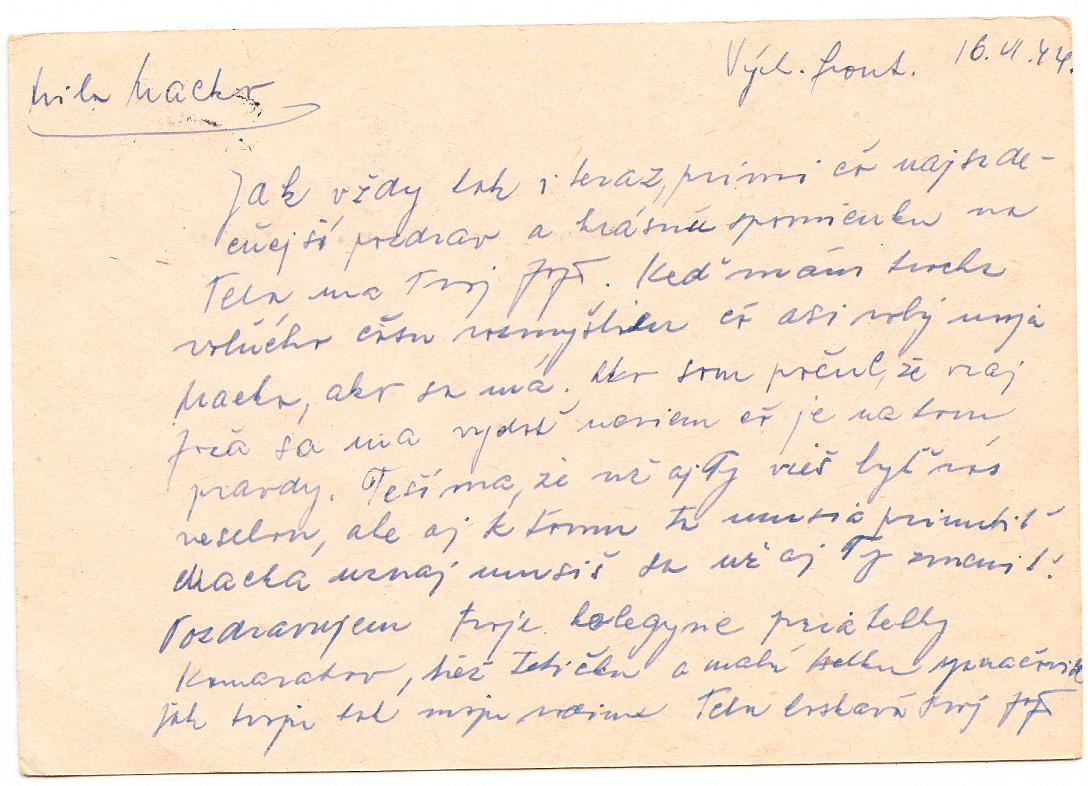 Vých. front. 16.VI.44.
Milá Macko
Jak vždy tak i teraz, prími čo najsrde-
čnejší pozdrav a krásnú spomienku na
Teba ma Tvoj Jož. Keď mám trocha
volného času rozmýšlam čo asi robý moja
Macka, ako sa má. Ako som počul, že vraj
sa ma vydať neviem čo je na tom
pravdy. Teší ma, že už aj Ty vieš byť
veselou, ale aj k tomu ta musia primutiť
Macka uznaj musíš sa už aj Ty zmeniť.
Pozdravujem tvoje kolegyne priatelky
Kamaratov, tiež Tetičku a malú
jak tvoju tak moju rodinu Teba Tvoj Jož